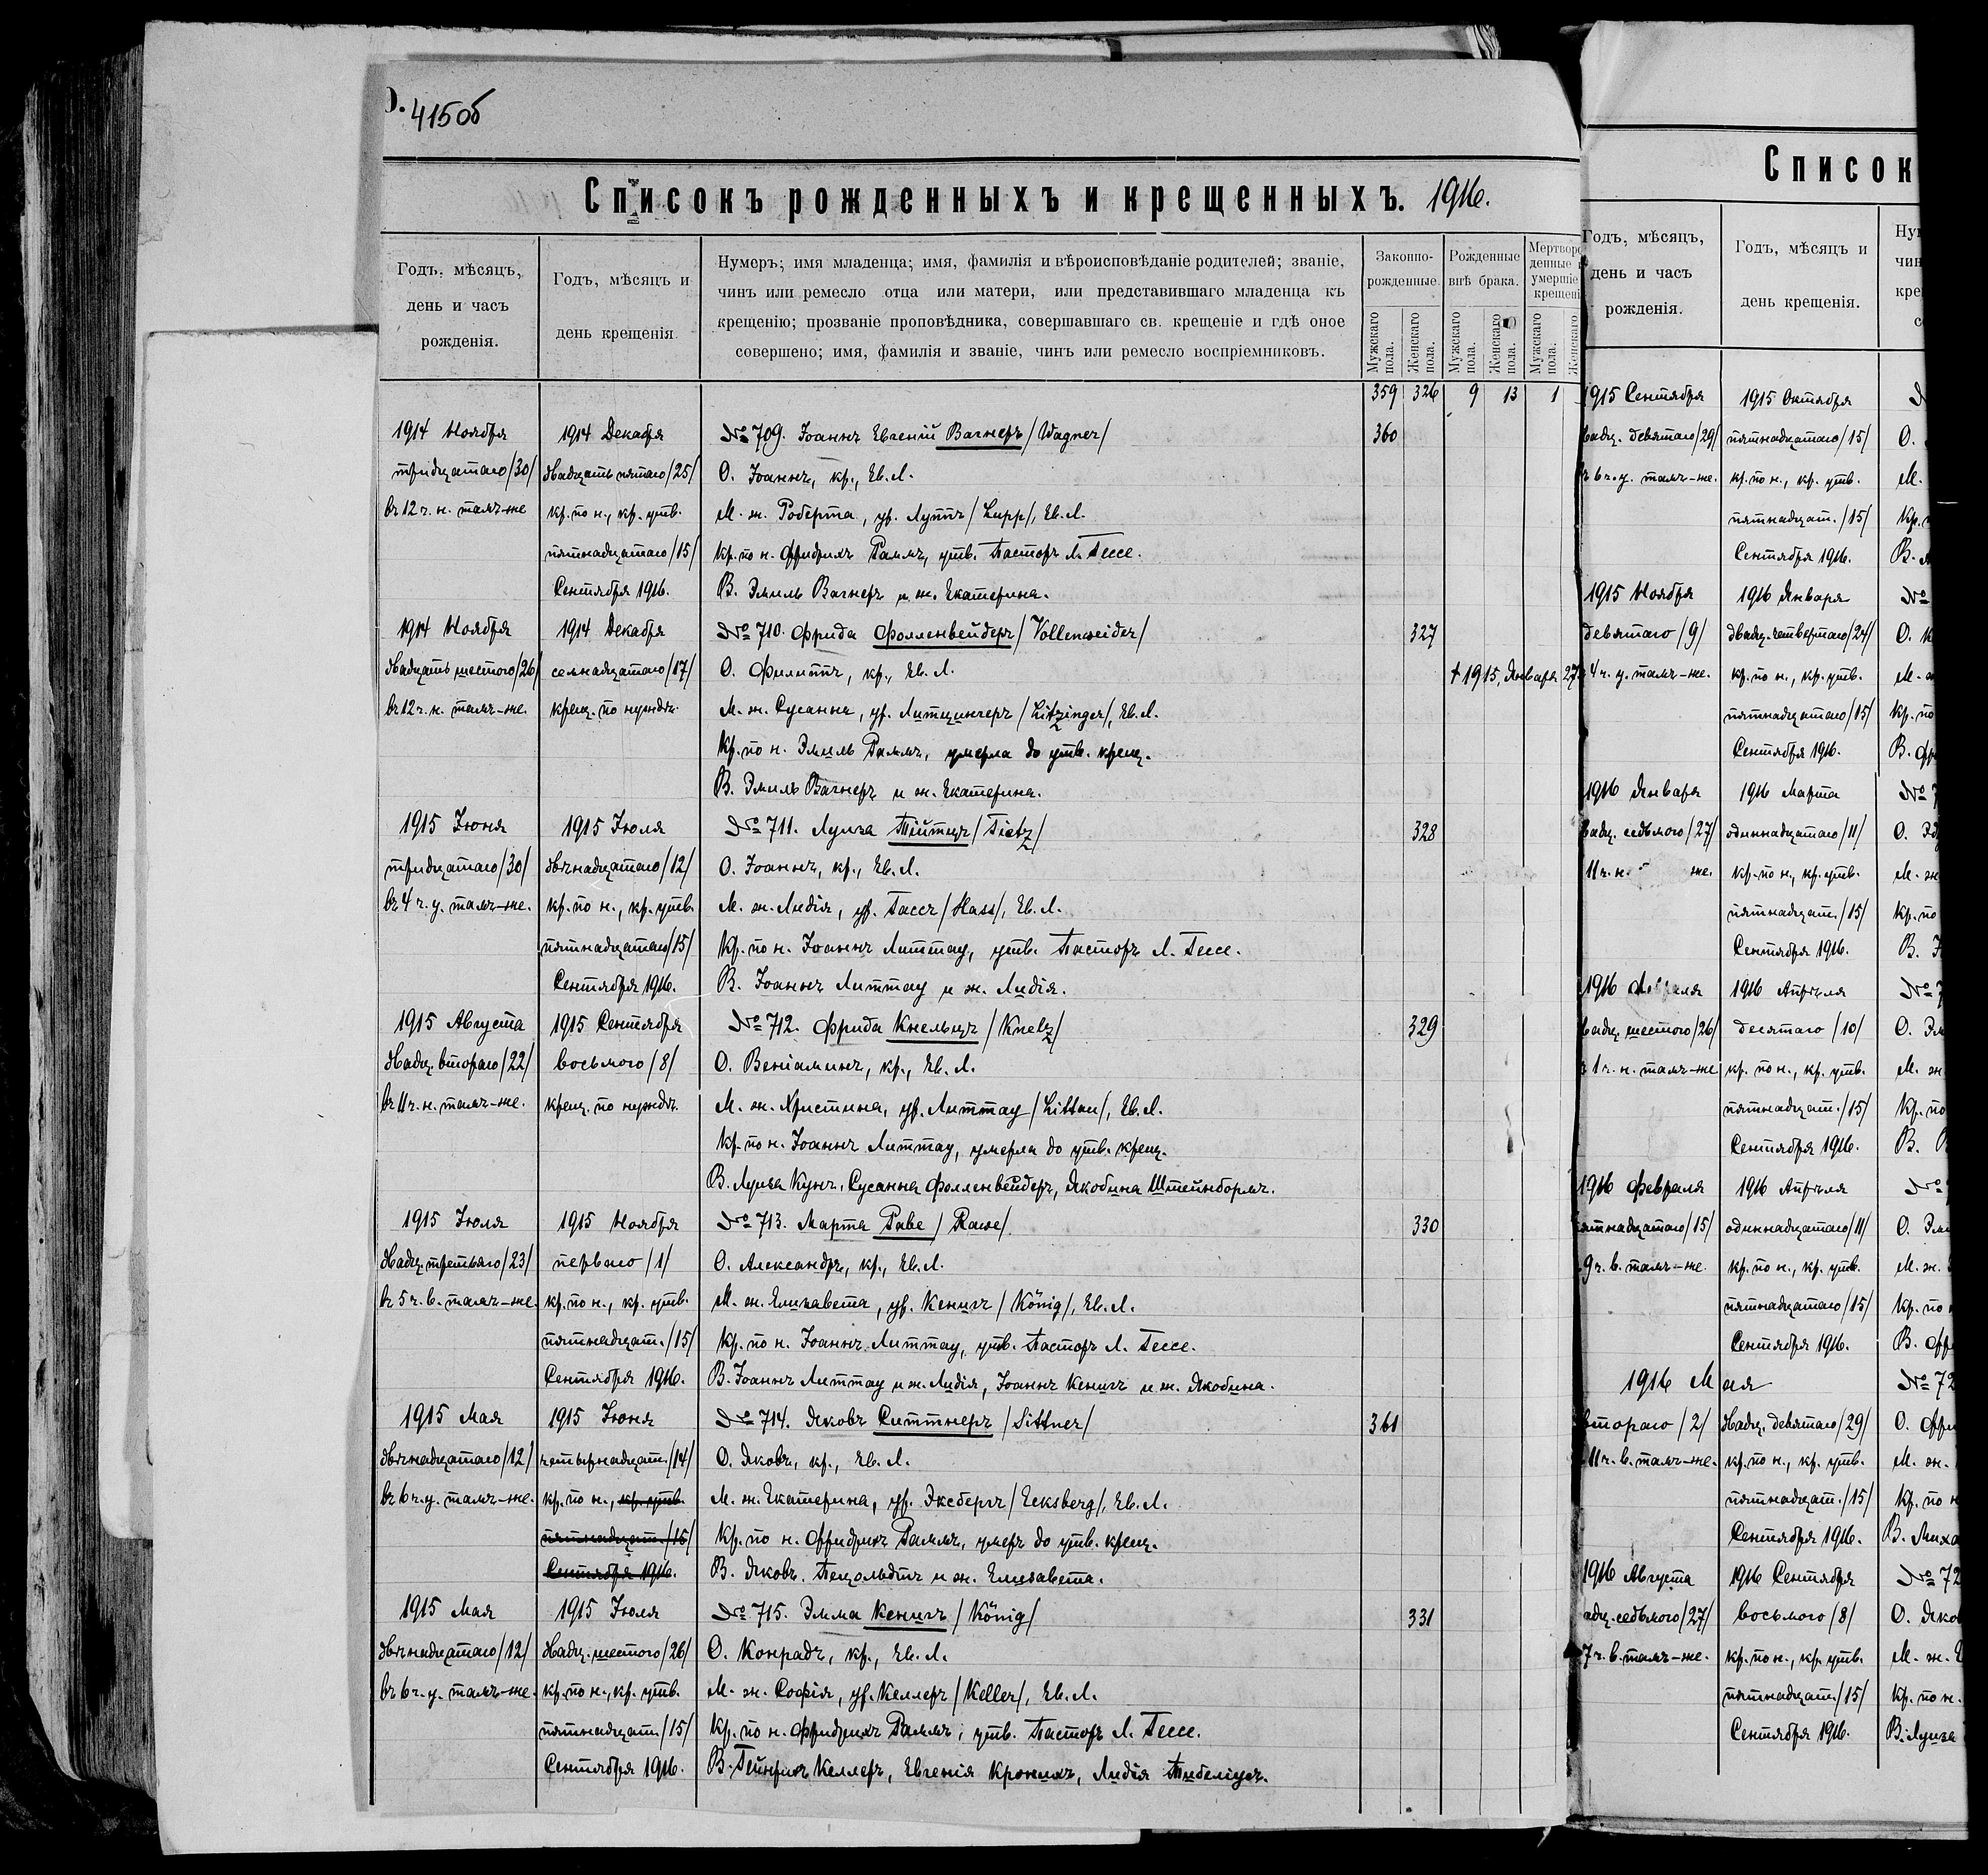 415об
Списокъ рожденныхъ и крещенныхъ. 1916.
Годъ, мѣсяцъ, день и часъ рожденія.
Годъ, мѣсяцъ и день крещенія.
Нумеръ; имя младенца; имя, фамилія и вѣроисповѣданіе родителей; званіе,
чинъ или ремесло отца или матери, или представившаго младенца къ
крещенію; прозваніе проповѣдника, совершавшаго св. крещеніе и гдѣ оное
совершено; имя, фамилія и званіе, чинъ или ремесло воспріемниковъ.
Законно-рожденные.
Рожденные внѣ брака.
Мужскаго пола. Женскаго пола. Мужскаго пола. Женскаго пола. Мужскаго пола. Женскаго
359 326 9 13 1
1914 Ноября 1914 Декабря № 709. Іоаннъ Евгеній Вагнеръ /Wagner/ 360
тридцатаго /30/ двадцать пятаго /25/ О. Іоаннъ, кр., Ев. Л.
въ 12 ч. н. тамъ-же кр. по н., кр. утв. М. ж. Роберта, ур. Луппъ /Lupp/, Ев. Л.
пятнадцатаго /15/ Кр. по н. Фридрихъ Раммъ, утв. Пасторъ Л. Гессе.
Сентября 1916. В. Эмиль Вагнеръ и ж. Екатерина.
1914 Ноября 1914 Декабря № 710. Фрида Фолленвейдеръ /Vollenweider/ 327
двадцать шестого /26/ семнадцатаго /17/ О. Филиппъ, кр., Ев. Л. † 1915, Января 27
въ 12 ч. н. тамъ-же. крещ. по нуждѣ. М. ж. Сусанна, ур. Литцингеръ /Litzinger/, Ев. Л.
Кр. по н. Эмиль Раммъ, умерла до утв. крещ.
В. Эмиль Вагнеръ и ж. Екатерина.
1915 Іюня 1915 Іюля № 711. Луиза Тійтцъ /Tietz/ 328
тридцатаго /30/ двѣнадцатаго /12/ О. Іоаннъ, кр., Ев. Л.
въ 4 ч. у. тамъ-же. кр. по н., кр. утв. М. ж. Лидія, ур. Гассъ /Hass/, Ев. Л.
пятнадцатаго /15/ Кр. по н. Іоаннъ Литтау, утв. Пасторъ Л. Гессе.
Сентября 1916. В. Іоаннъ Литтау и ж. Лидія.
1915 Августа 1915 Сентября № 712. Фрида Кнельцъ /Knelz/ 329
двадц. втораго /22/ восьмого /8/ О. Веніаминъ, кр., Ев. Л.
въ 11 ч. н. тамъ-же. крещ. по нуждѣ. М. ж. Христина, ур. Литтау /Littau/, Ев. Л.
Кр. по н. Іоаннъ Литтау, умерла до утв. крещ.
В. Луиза Кунъ, Сусанна Фолленвейдеръ, Якобина Штейнборнъ.
1915 Іюля 1915 Ноября № 713. Марта Раве /Rawe/ 330
двадц. третьяго /23/ перваго /1/ О. Александръ, кр., Ев. Л.
въ 5 ч. в. тамъ-же. кр. по н., кр. утв. М. ж. Елизавета, ур. Кенигъ /König/, Ев. Л.
пятнадцат. /15/ Кр. по н. Іоаннъ Литтау, утв. Пасторъ Л. Гессе.
Сентября 1916. В. Іоаннъ Литтау и ж. Лидія, Іоаннъ Кенигъ и ж. Якобина.
1915 Мая 1915 Іюня № 714. Яковъ Ситтнеръ /Sittner/ 361
двѣнадцатаго /12/ четырнадцат. /14/ О. Яковъ, кр., Ев. Л.
въ 6 ч. у. тамъ-же. кр. по н., кр. утв. М. ж. Екатерина, ур. Эксбергъ /Ecksberg/, Ев. Л.
пятнадцат. /15/ Кр. по н. Фридрихъ Раммъ, умеръ до утв. крещ.
Сентября 1916. В. Яковъ Пецольдтъ и ж. Елизавета.
1915 Мая 1915 Іюля № 715. Эмма Кенигъ /König/ 331
двѣнадцатаго /12/ двадц. шестого /26/ О. Конрадъ, кр., Ев. Л.
въ 6 ч. у. тамъ-же. кр. по н., кр. утв. М. ж. Софія, ур. Келлеръ /Keller/, Ев. Л.
пятнадцат. /15/ Кр. по н. Фридрихъ Раммъ, утв. Пасторъ Л. Гессе.
Сентября 1916. В. Гейнрихъ Келлеръ, Евгенія Кронихъ, Лидія Тибеліусъ.
Список
Годъ, мѣсяцъ, день и часъ рожденія.
Годъ, мѣсяцъ и день крещенія.
1915 Сентября 1915 Октября
девятаго /29/ пятнадцатаго /15/ О.
6 ч. у. тамъ-же. кр. по н., кр. утв. М.
пятнадцат. /15/ Кр.
Сентября 1916. В.
1915 Ноября 1916 Января №
девятаго /9/ двадц. четвертаго /24/ О.
4 ч. у. тамъ-же. кр. по н., кр. утв. М.
пятнадцатаго /15/ Кр. по
Сентября 1916. В.
1916 Января 1916 Марта №
двадц. седьмого /27/ одиннадцатаго /11/ О.
11 ч. н. же. кр. по н., кр. утв. М. ж
пятнадцат. /15/ Кр. по
Сентября 1916. В.
1916 Февраля 1916 Апрѣля №
двадц. шестого /26/ десятаго /10/ О.
1 ч. н. тамъ-же кр. по н., кр. утв. М. ж
пятнадцат. /15/ Кр. по
Сентября 1916. В.
1916 Февраля 1916 Апрѣля №
пятнадцатаго /15/ одиннадцатаго /11/ О.
9 ч. в. тамъ-же. кр. по н., кр. утв. М. ж.
пятнадцатаго /15/ Кр. по
Сентября 1916. В.
1916 Мая № 72
втораго /2/ двадц. девятаго /29/ О.
11 ч. в. тамъ-же. кр. по н., кр. утв. М. ж.
пятнадцат. /15/ Кр. по н
Сентября 1916. В. Миха
1916 Августа 1916 Сентября № 72
адц. седьмого /27/ восьмого /8/ О. Яко
7 ч. в. тамъ-же. кр. по н., кр. утв. М. ж.
пятнадцат. /15/ Кр. по н.
Сентября 1916. В. Луиза